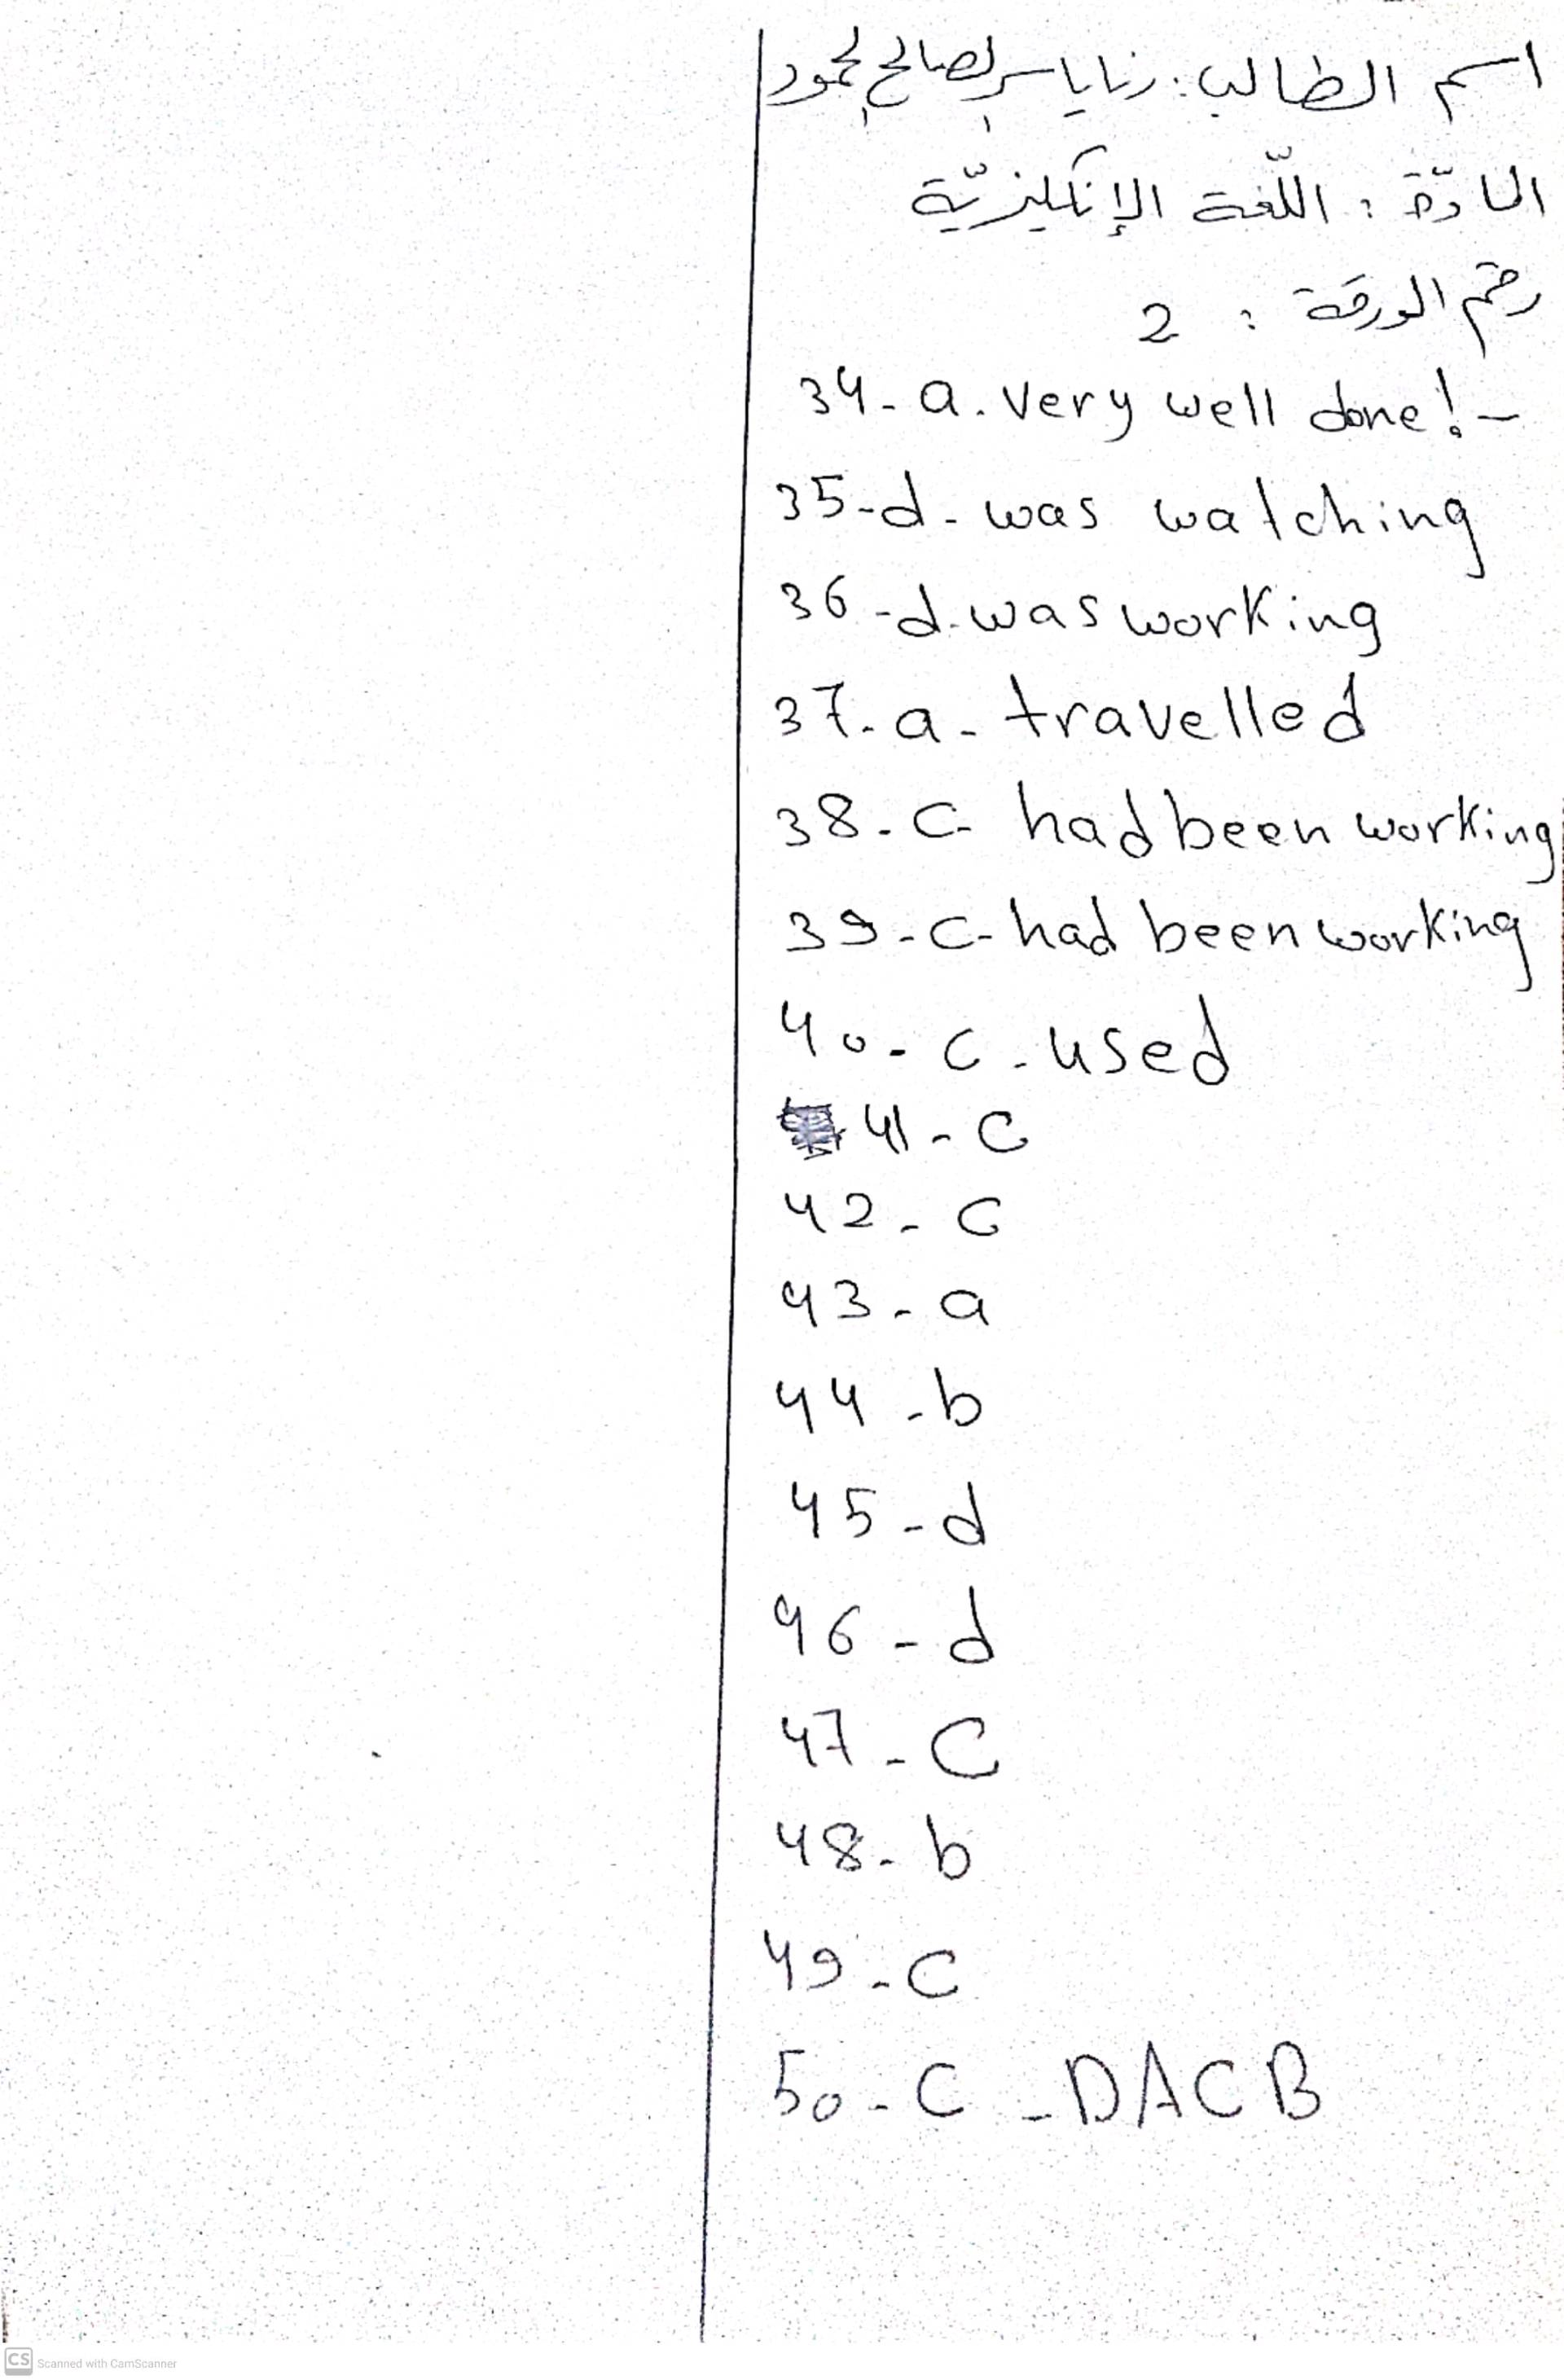 اسم الطالب: رنا ياسر الصالح المحمود
المادّة: اللّغة الإنكليزيّة
رقم الورقة: 2
34- a. very well done! -
35-d- was watching
36-d. was working
37- a- travelled
38- c- had been working
39-c- had been working
40- c- used
41- c
42- c
43- a
44-b
45-d
46-d
47-C
48-b
49-C
50-C-DACB
CS Scanned with CamScanner